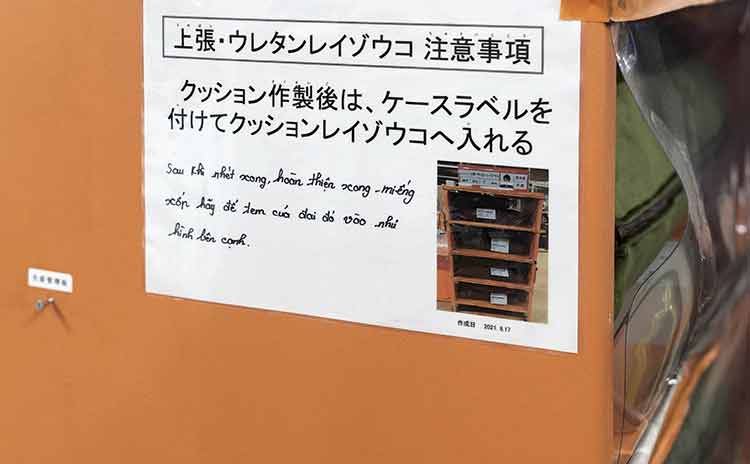 上張・ウレタンレイゾウコ 注意事項
クッション作製後は、ケースラベルを
付けてクッションレイゾウコへ入れる
Sau khi nhét xong, hoàn thiện xong miếng
xốp hãy để tem của đai đó vào như
hình bên cạnh.
作成日 2021. 9.17